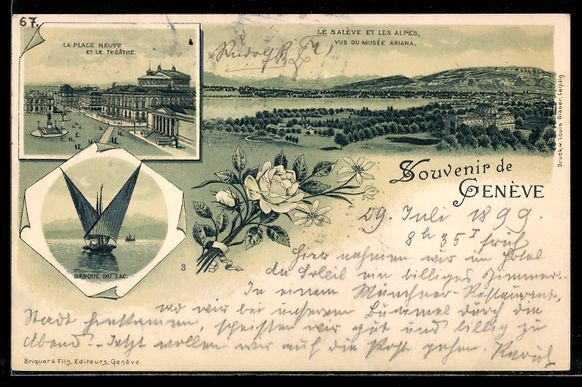 67.
LA PLACE NEUVE
ET LE THÉÂTRE.
LE SALÈVE ET LES ALPES,
VUS DU MUSÉE ARIANA.
Druck v. Louis Glaser, Leipzig
Souvenir de
GENÈVE
BARQUE DU LAC.
3
29. Juli 1899.
8 h 35 früh
Hier nahmen wir im Hotel
du Soleil ein billiges Zimmer.
In einem Münchner-Restaurant,
wo wir bei unserem Bummel durch die
Stadt hinkamen, speisten wir gut und billig zu
Abend. Jetzt wollen wir auf die Post gehen.
Briquet & Fils, Editeurs, Genève.